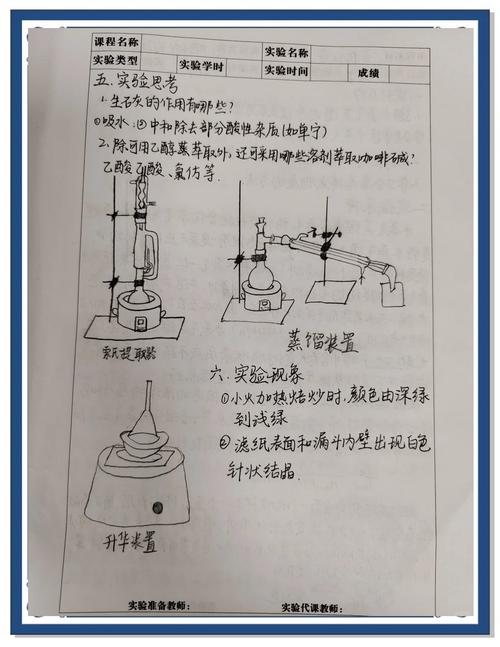 课程名称 实验名称
实验类型 实验学时 实验时间 成绩
五.实验思考
1.生石灰的作用有哪些?
①吸水;②中和除去部分酸性杂质(如单宁)
2.除可用乙醇蒸萃取外,还可采用哪些溶剂萃取咖啡碱?
乙酸乙酸、氯仿等.
索氏提取器
蒸馏装置
六.实验现象
①小火加热焙炒时,颜色由深绿
到浅绿
②滤纸表面和漏斗内壁出现白色
针状结晶.
升华装置
实验准备教师: 实验代课教师: